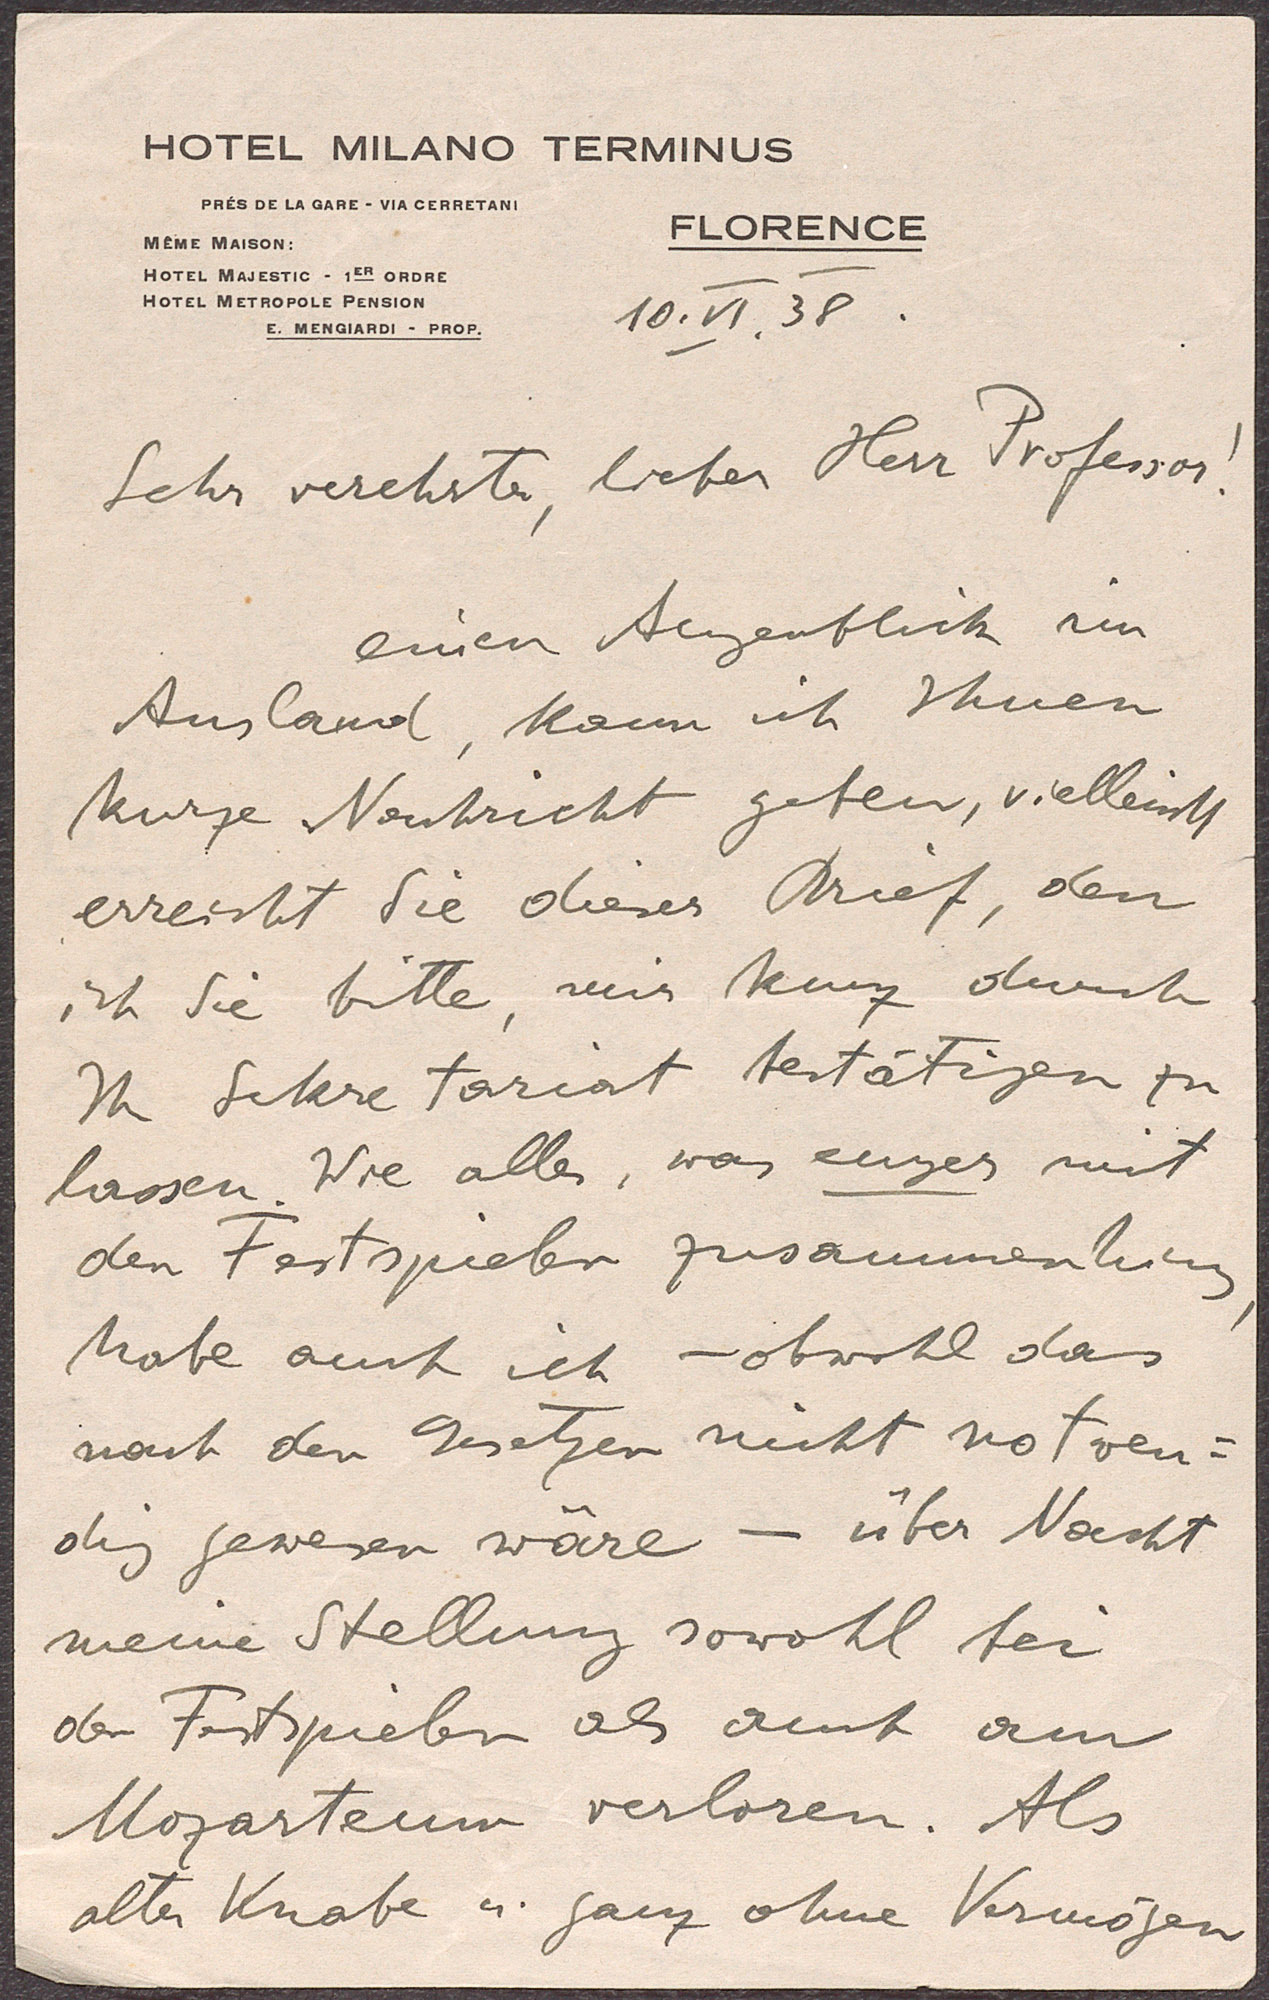 HOTEL MILANO TERMINUS
PRÉS DE LA GARE - VIA CERRETANI
FLORENCE
MÊME MAISON:
HOTEL MAJESTIC - 1ER ORDRE
HOTEL METROPOLE PENSION
E. MENGIARDI - PROP.
10.VI.38.
Sehr verehrter, lieber Herr Professor!
einen Augenblick im
Ausland, kann ich Ihnen
kurze Nachricht geben, vielleicht
erreicht Sie dieser Brief, den
ich Sie bitte, mir kurz durch
Ihr Sekretariat bestätigen zu
lassen. Wie alles, was enger mit
den Festspielen zusammenhing,
habe auch ich – obwohl das
nach den Gesetzen nicht notwen=
dig gewesen wäre – über Nacht
meine Stellung sowohl bei
den Festspielen als auch am
Mozarteum verloren. Als
alter Knabe u. ganz ohne Vermögen